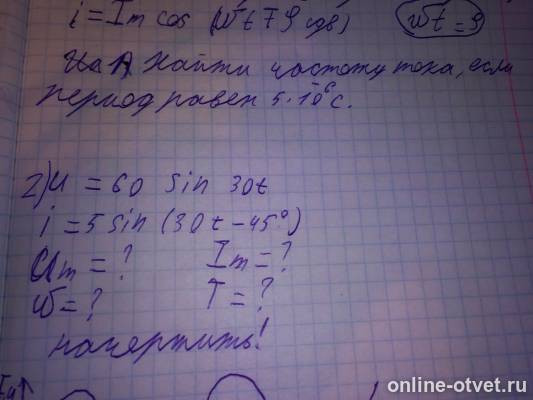 i = Im cos (wt + φ сдв) wt = φ
Найти частоту тока, если
период равен 5·10⁻⁶ с.
2) u = 60 sin 30t
i = 5 sin (30t - 45°)
Um = ? Im = ?
w = ? T = ?
начертить!
online-otvet.ru